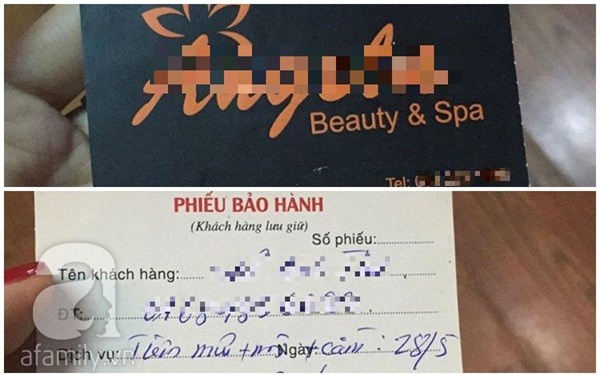 Beauty & Spa
Tel:
PHIẾU BẢO HÀNH
(Khách hàng lưu giữ)
Số phiếu:
Tên khách hàng:
ĐT:
Dịch vụ: Tiêm mũi + môi + cằm Ngày: 28/5
afamily.vn